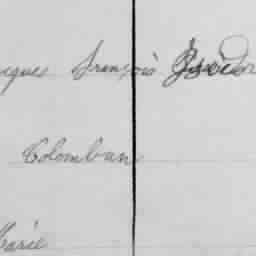 ques françois Isidor
Colomban
Marie